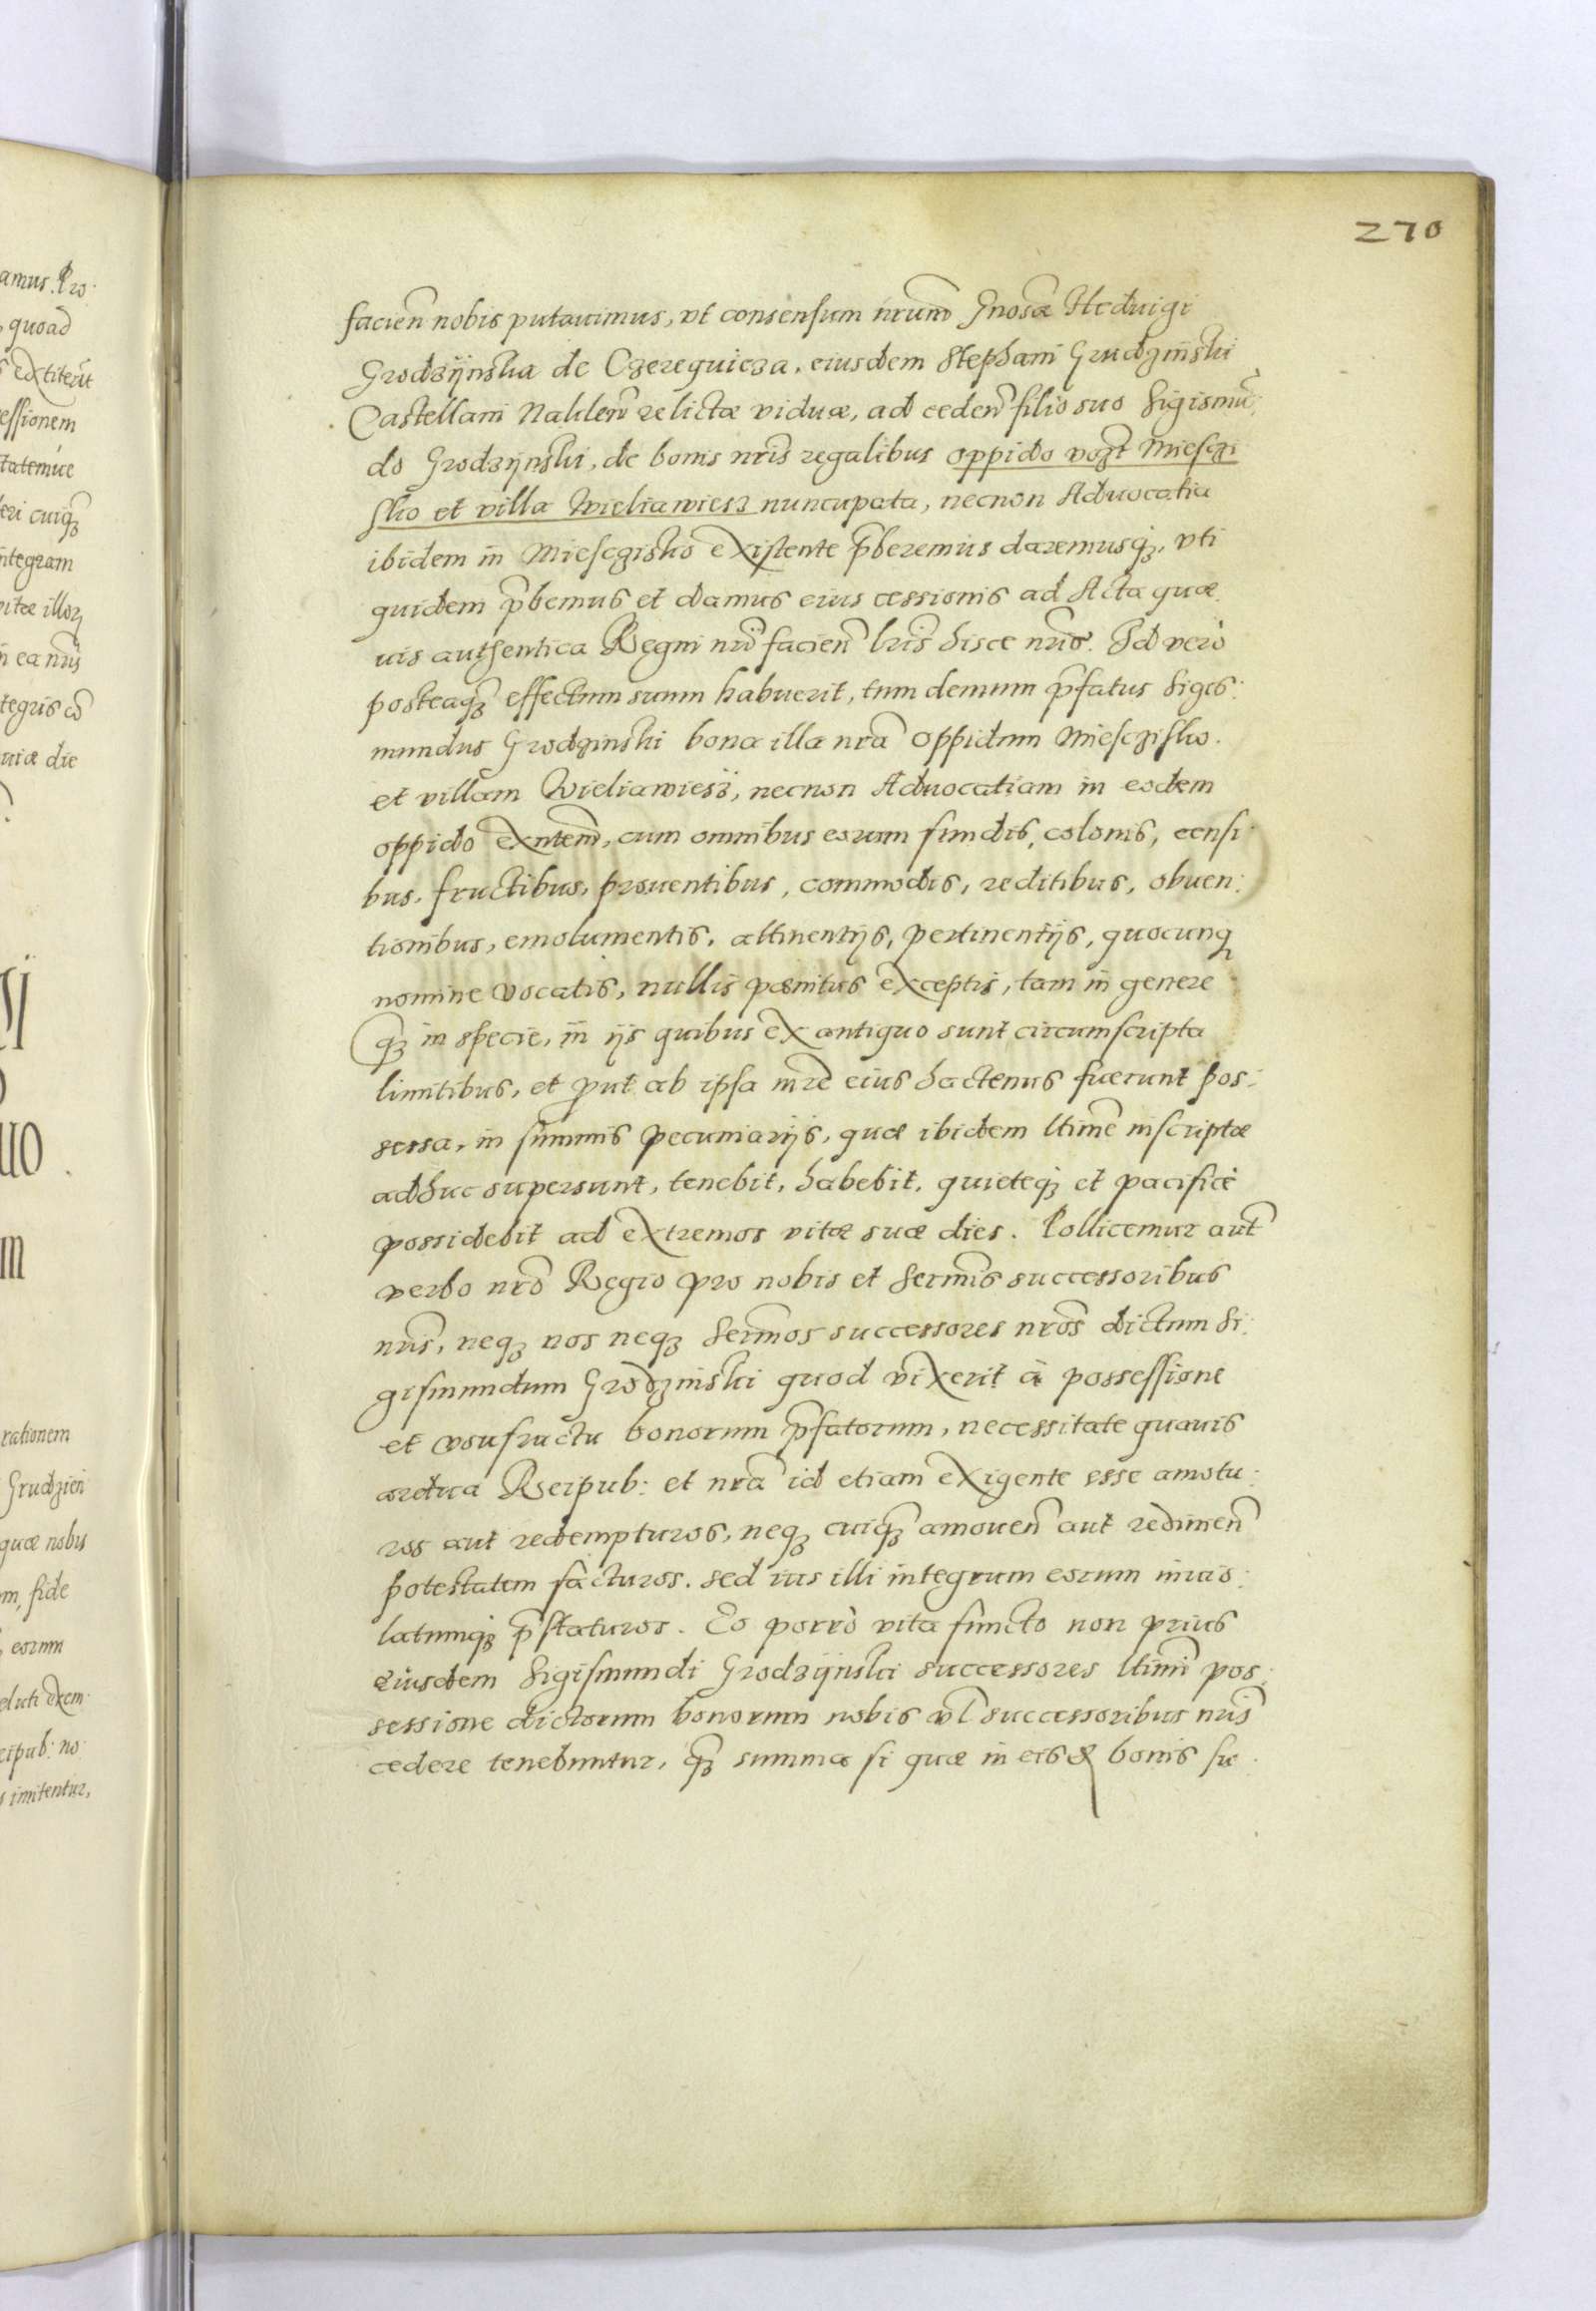 270
amus. Pro:
quoad
extiterūt
essionem
tatemue
eri cuiqȝ
integram
vitæ illoꝝ
in ea nr̄is
tegris
uiæ die
UO.
rationem
Grudzień
quæ nobis
m, fide
eorum
eluti exem:
eipub: no:
s imitentur,
facien̄ nobis putauimus, vt consensum nr̄um Gnosæ Heduigi
Grodzijnska de Czereguicza, eiusdem Stephani Grudzinski
Castellani Naklen̄ relictæ viduæ, ad ceden̄ filio suo Sigismū:
do Grodzijnski, de bonis nr̄is regalibus oppido Miesczi
sko et villa Wieliawiesz nuncupata, necnon Aduocatia
ibidem in Miesczisko existente p̄beremus daremusqȝ, vti
quidem p̄bemus et damus eius cessionis ad Acta quæ
uis authentica Regni nr̄i facien̄ lr̄is hisce nr̄is. Id verò
posteaqȝ effectum suum habuerit, tum demum p̄fatus Sigis:
mundus Grodzinski bona illa nr̄a oppidum Miesczisko.
et villam Wieliawiesz, necnon Aduocatiam in eodem
oppido exn̄tem, cum omnibus eorum fundis, colonis, censi:
bus, fructibus, prouentibus, commodis, reditibus, obuen:
tionibus, emolumentis, attinentijs, pertinentijs, quocunqȝ
nomine vocatis, nullis pænitus exceptis, tam in genere
qȝ in specie, in ijs quibus ex antiquo sunt circumscripta
limitibus, et ꝓut ab ipsa mr̄e eius hactenus fuerunt pos:
sessa, in summis pecuniarijs, quæ ibidem ltimē inscriptæ
adhuc supersunt, tenebit, habebit, quieteqȝ et pacificè
possidebit ad extremos vitæ suæ dies. Pollicemur aut̄
verbo nr̄o Regio pro nobis et Sermis successoribus
nr̄is, neqȝ nos neqȝ Sermos successores nr̄os dictum Si:
gismundum Grodzinski quod vixerit à possessione
et vsufructu bonorum p̄fatorum, necessitate quauis
ardua Reipub: et nr̄a id etiam exigente esse amotu:
ros aut redempturos, neqȝ cuiqȝ amouen̄ aut redimen̄
potestatem facturos. sed ius illi integrum eorum inuio:
latumqȝ p̄staturos. Eo porrò vita functo non prius
eiusdem Sigismundi Grodzijnski successores ltimi pos:
sessione dictorum bonorum nobis vl̄ successoribus nr̄is
cedere tenebuntur, qȝ summa si quæ in eisd̄ bonis su: